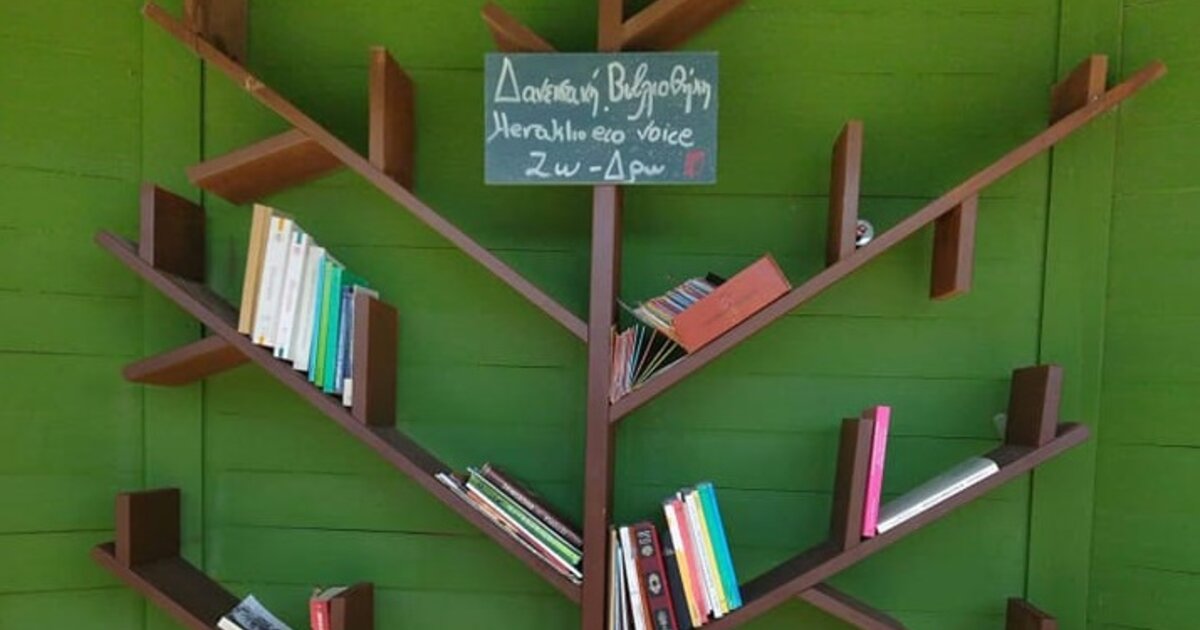 Δανειστική Βιβλιοθήκη
Heraklio eco voice
Ζω - Δρω